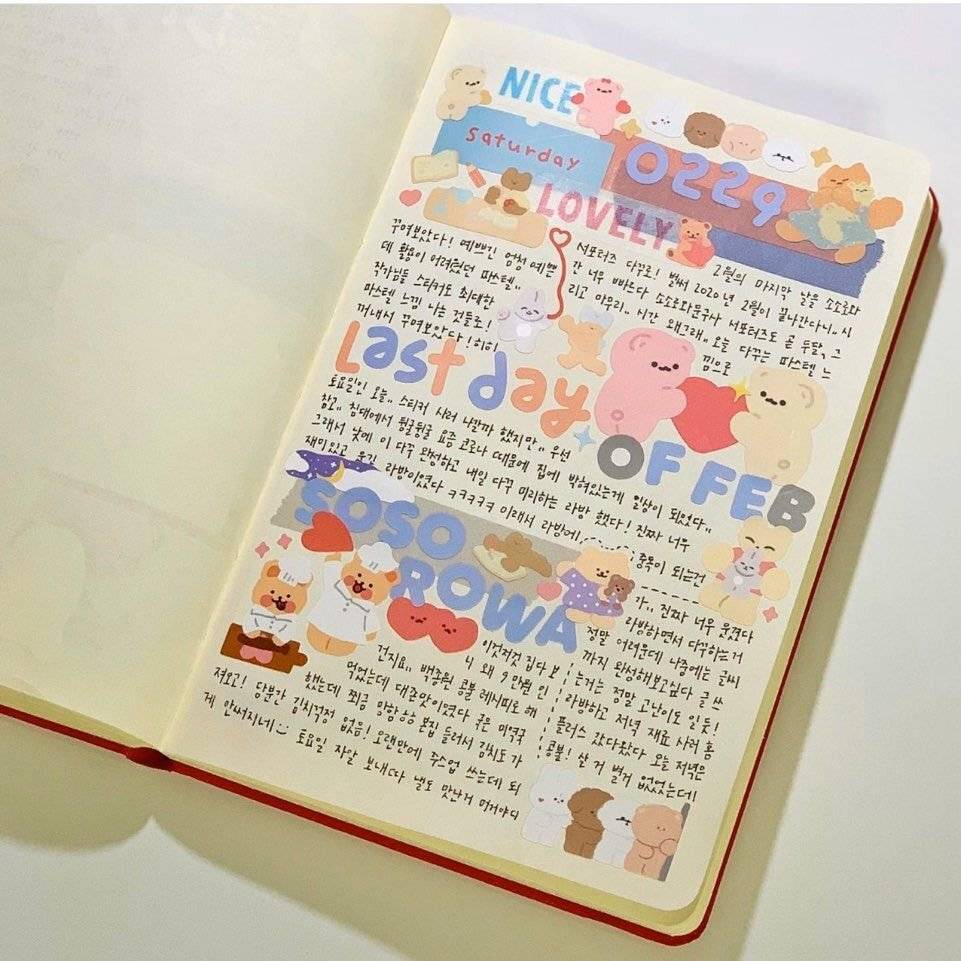 NICE
saturday
0229
LOVELY
2월의 마지막 날을 소소로와
서포터즈 다꾸로! 벌써 2020년 2월이 끝나간다니.. 시
간 너무 빠르다 소소로와문구사 서포터즈도 곧 두달, 그
리고 마무리.. 시간 왜그래.. 오늘 다꾸는 파스텔 느
낌으로
꾸여보았다! 예쁘긴 엄청 예쁜
데 활용이 어려웠던 파스텔..
작가님들 스티커도 최대한
파스텔 느낌 나는 것들로!
꺼내서 꾸여보았다! 히히
Last day
OF FEB
토요일인 오늘.. 스티커 사러 나갈까 했지만.. 우선
참고.. 침대에서 뒹굴뒹굴 요즘 코로나 때문에 집에 박혀있는게 일상이 되었다..
그래서 낮에 이 다꾸 완성하고 내일 다꾸 미리하는 라방 했다! 진짜 너무
재미있고 웃긴 라방이였다 ㅋㅋㅋㅋㅋ 이래서 라방에
중독이 되는건
SOSO
ROWA
가.. 진짜 너무 웃겼다
라방하면서 다꾸하는거
정말 어려운데 나중에는 글씨
까지 완성해보고싶다 글 쓰
는거는 정말 고난이도 일듯!
라방하고 저녁 재료 사러 홈
플러스 갔다왔다 오늘 저녁은
콩불! 산 거 별거 없었는데!
이것저것 집다 보
니 왜 9만원 인
건지요.. 백종원 콩불 레시피로 해
먹었는데 대존맛이였다 국은 미역국
했는데 쬐금 망함 본집 들러서 김치도 가
져오고! 당분간 김치걱정 없음! 오랜만에 주스업 쓰는데 되
게 안써지네 토요일 자알 보내따 낼도 맛난거 머거야디